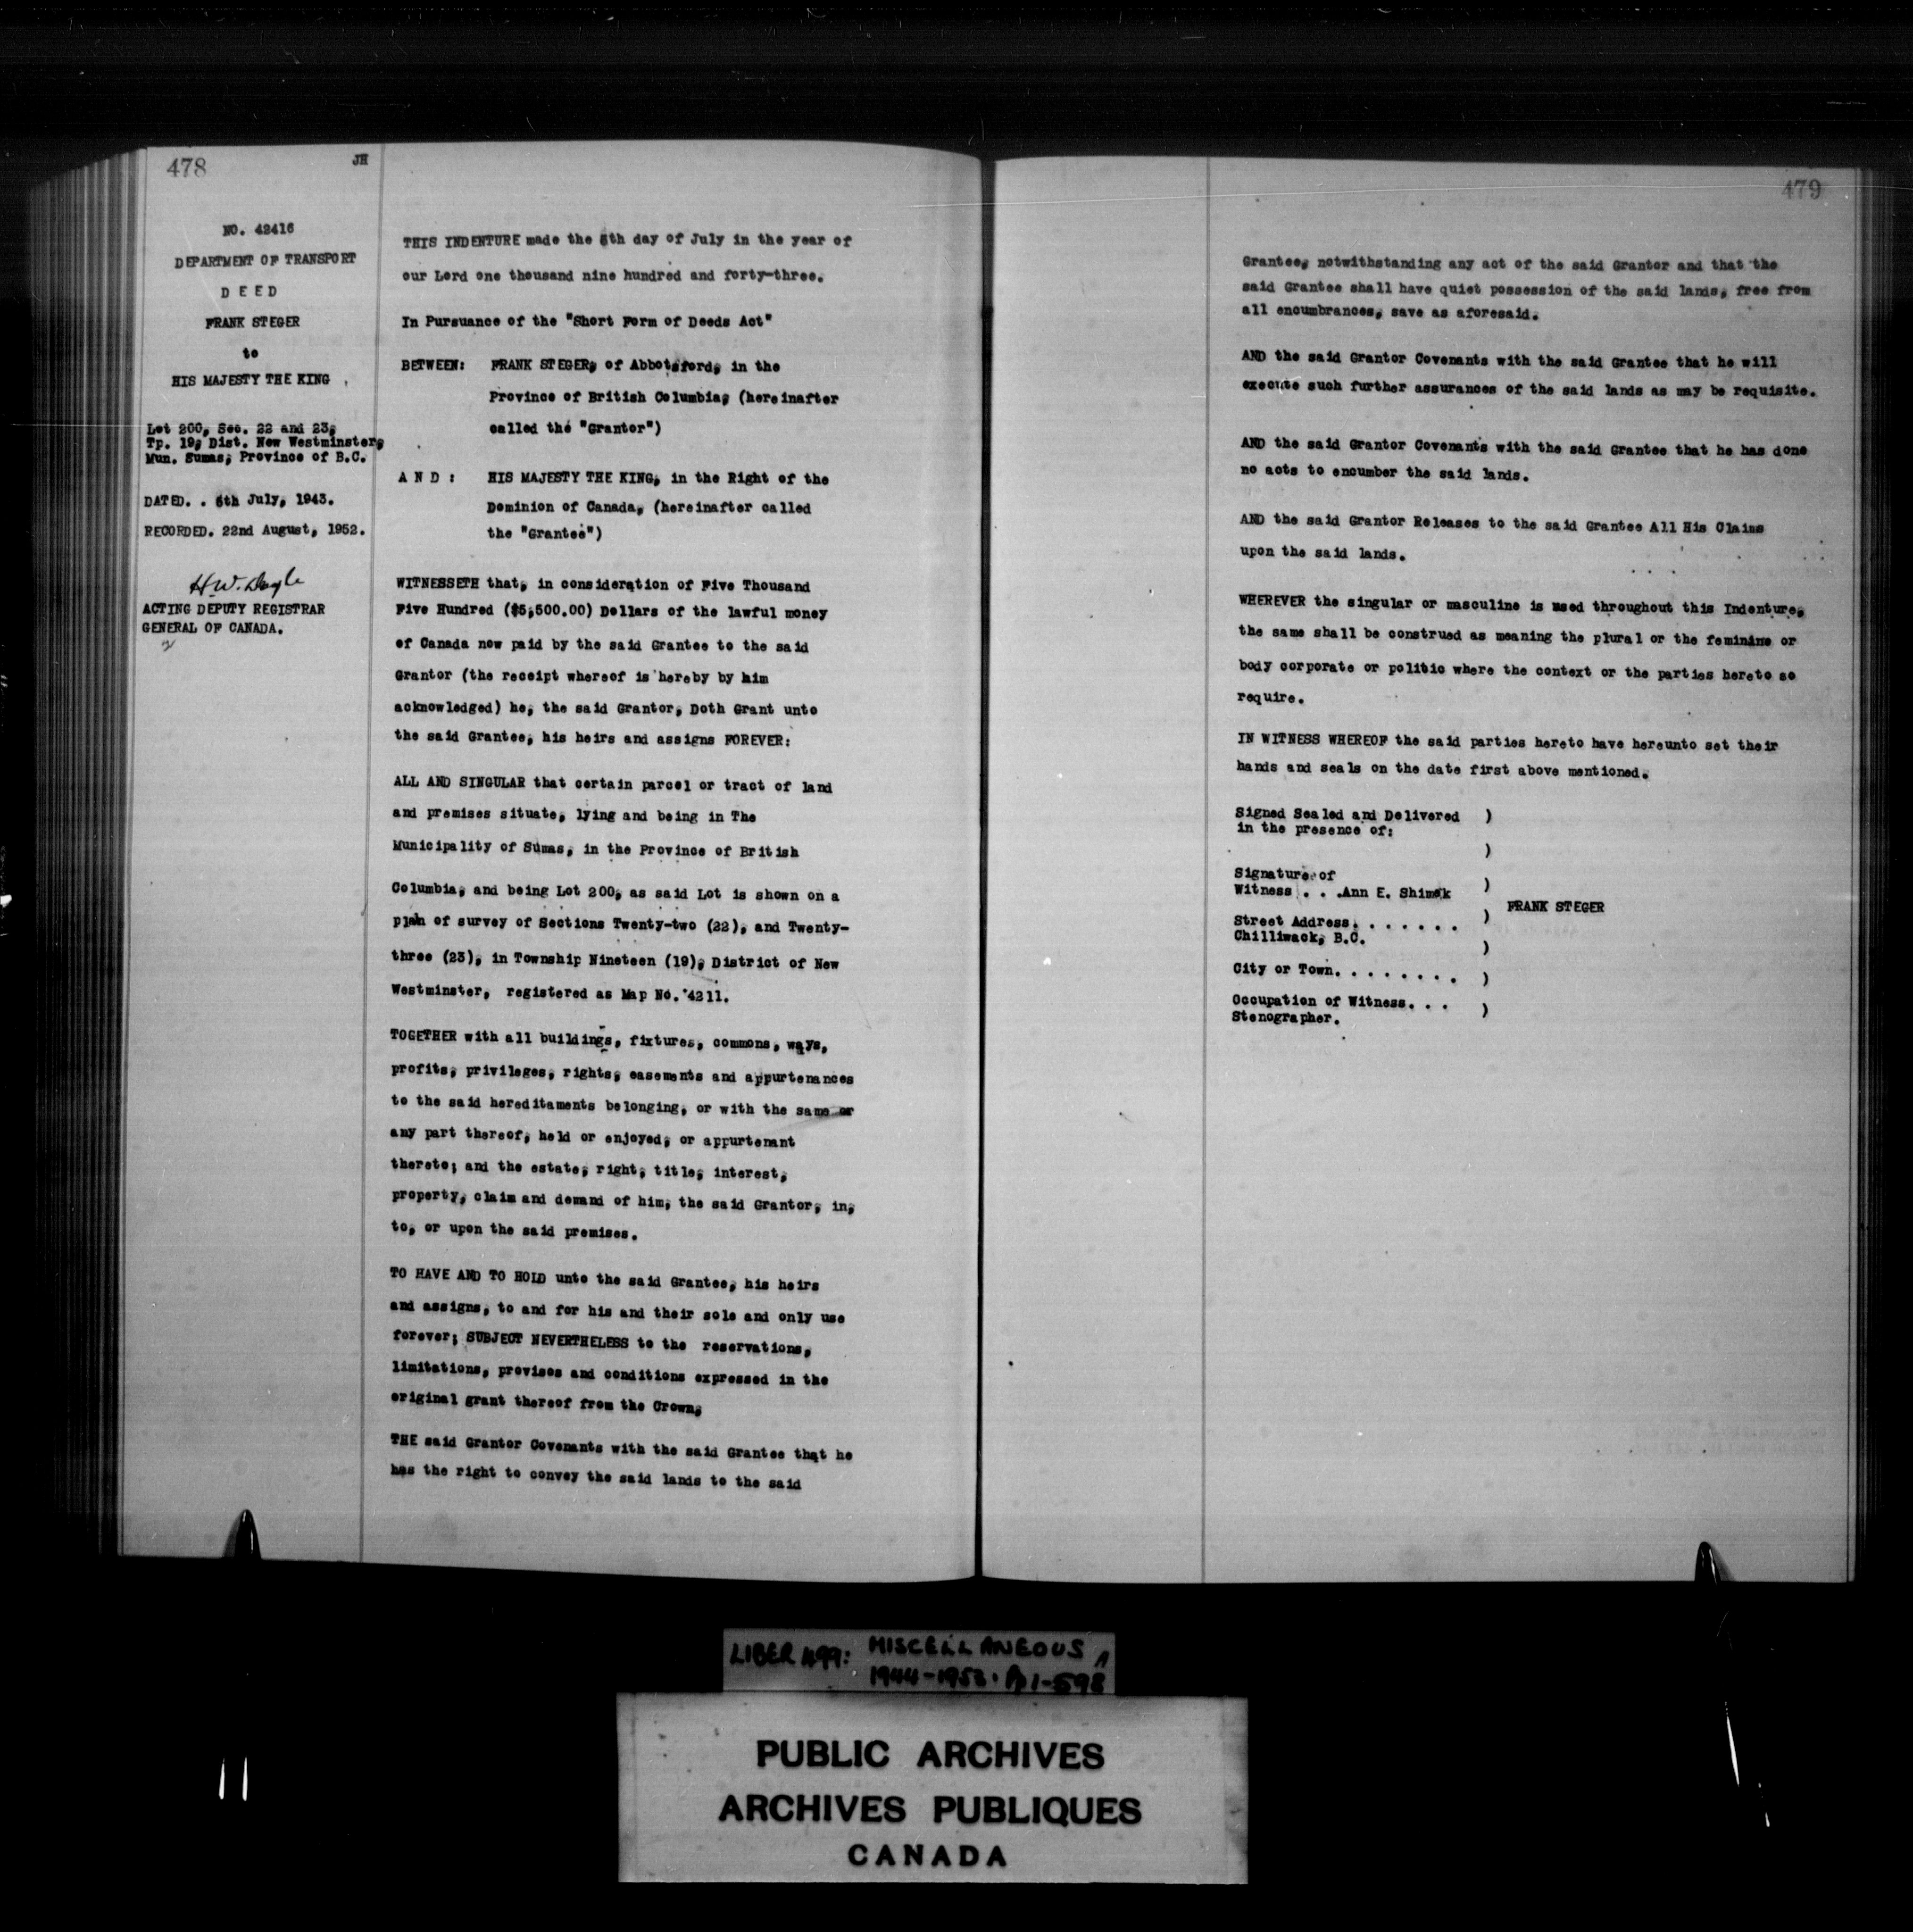 478
JH
NO. 42416
DEPARTMENT OF TRANSPORT
D E E D
FRANK STEGER
to
HIS MAJESTY THE KING
Lot 200, Sec. 22 and 23,
Tp. 19, Dist. New Westminster,
Mun. Sumas, Province of B.C.
DATED. . July, 1943.
RECORDED. 22nd August, 1952.
H.W. Doyle
ACTING DEPUTY REGISTRAR
GENERAL OF CANADA.
THIS INDENTURE made the day of July in the year of
our Lord one thousand nine hundred and forty-three.
In Pursuance of the "Short Form of Deeds Act"
BETWEEN: FRANK STEGER, of Abbotsford, in the
Province of British Columbia, (hereinafter
called the "Grantor")
A N D : HIS MAJESTY THE KING, in the Right of the
Dominion of Canada, (hereinafter called
the "Grantee")
WITNESSETH that, in consideration of Five Thousand
Five Hundred ($5,500.00) Dollars of the lawful money
of Canada now paid by the said Grantee to the said
Grantor (the receipt whereof is hereby by him
acknowledged) he, the said Grantor, Doth Grant unto
the said Grantee, his heirs and assigns FOREVER:
ALL AND SINGULAR that certain parcel or tract of land
and premises situate, lying and being in The
Municipality of Sumas, in the Province of British
Columbia, and being Lot 200, as said Lot is shown on a
plan of survey of Sections Twenty-two (22), and Twenty-
three (23), in Township Nineteen (19), District of New
Westminster, registered as Map No. 4211.
TOGETHER with all buildings, fixtures, commons, ways,
profits, privileges, rights, easements and appurtenances
to the said hereditaments belonging, or with the same or
any part thereof, held or enjoyed, or appurtenant
thereto; and the estate, right, title, interest,
property, claim and demand of him, the said Grantor, in,
to, or upon the said premises.
TO HAVE AND TO HOLD unto the said Grantee, his heirs
and assigns, to and for his and their sole and only use
forever; SUBJECT NEVERTHELESS to the reservations,
limitations, provisos and conditions expressed in the
original grant thereof from the Crown;
THE said Grantor Covenants with the said Grantee that he
has the right to convey the said lands to the said
479
Grantee, notwithstanding any act of the said Grantor and that the
said Grantee shall have quiet possession of the said lands, free from
all encumbrances, save as aforesaid.
AND the said Grantor Covenants with the said Grantee that he will
execute such further assurances of the said lands as may be requisite.
AND the said Grantor Covenants with the said Grantee that he has done
no acts to encumber the said lands.
AND the said Grantor Releases to the said Grantee All His Claims
upon the said lands.
WHEREVER the singular or masculine is used throughout this Indenture,
the same shall be construed as meaning the plural or the feminine or
body corporate or politic where the context or the parties hereto so
require.
IN WITNESS WHEREOF the said parties hereto have hereunto set their
hands and seals on the date first above mentioned.
Signed Sealed and Delivered )
in the presence of:
)
Signature of
Witness . . .Ann E. Shimek )
FRANK STEGER
Street Address. . . . . . . )
Chilliwack, B.C.
)
City or Town. . . . . . . . )
Occupation of Witness. . . )
Stenographer.
LIBER 499: MISCELLANEOUS
1944-1952. Pp 1-598
PUBLIC ARCHIVES
ARCHIVES PUBLIQUES
CANADA